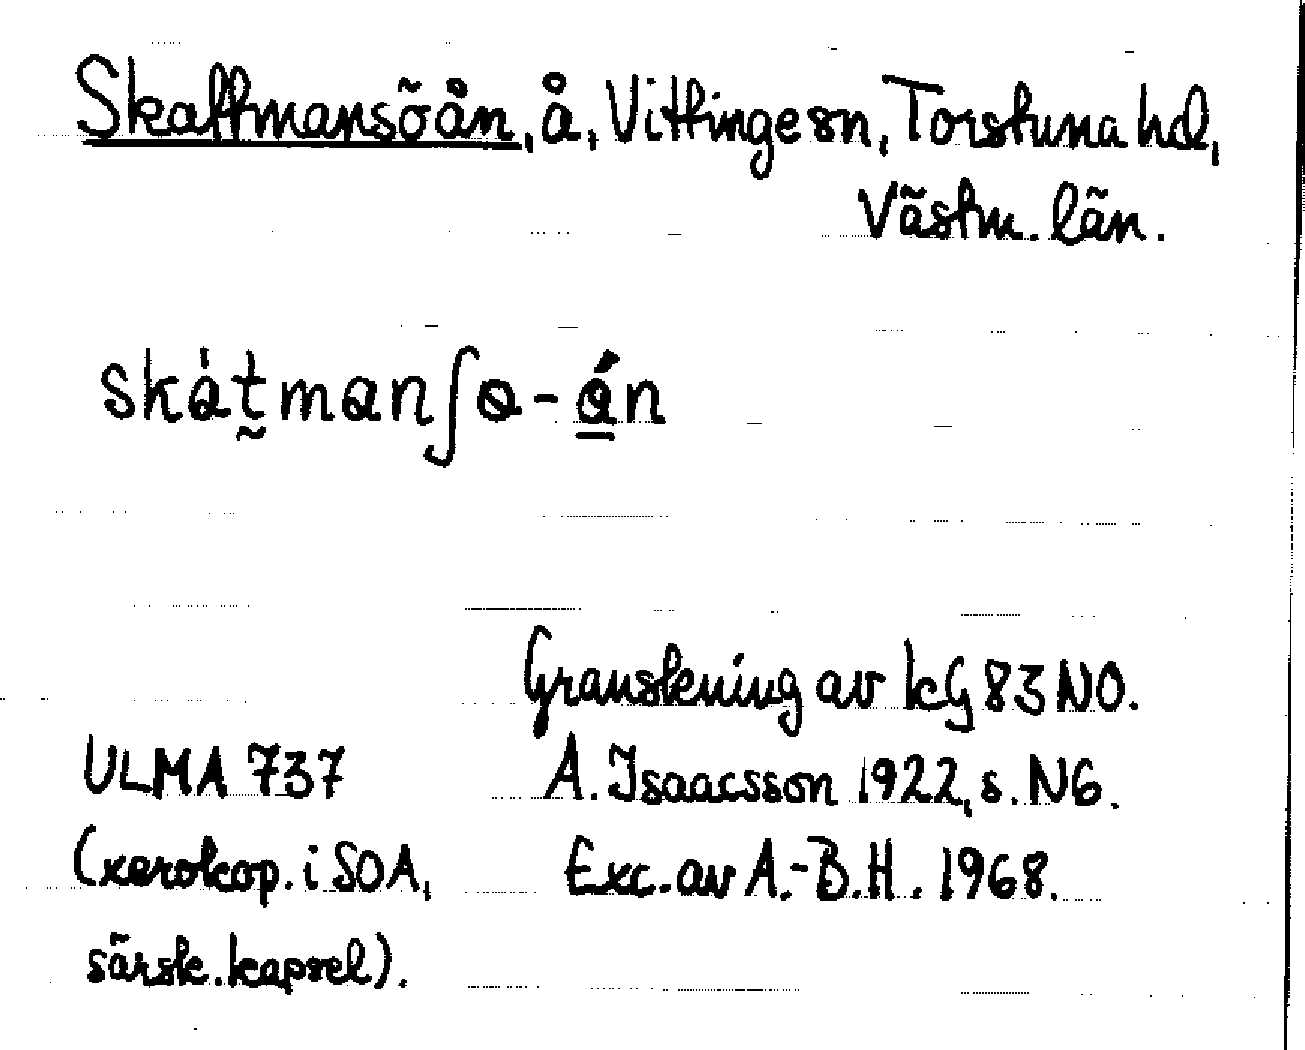 Skattmansöån, å, Vittinge sn, Torstuna hd,
Västm. län.
skȧt̰manʃɵ-á̱n
Granskning av kG 83 NO.
ULMA 737 A. Isaacsson 1922, s. N6.
(xerokop. i SOA, Exc. av A.-B.H. 1968.
särsk. kapsel).